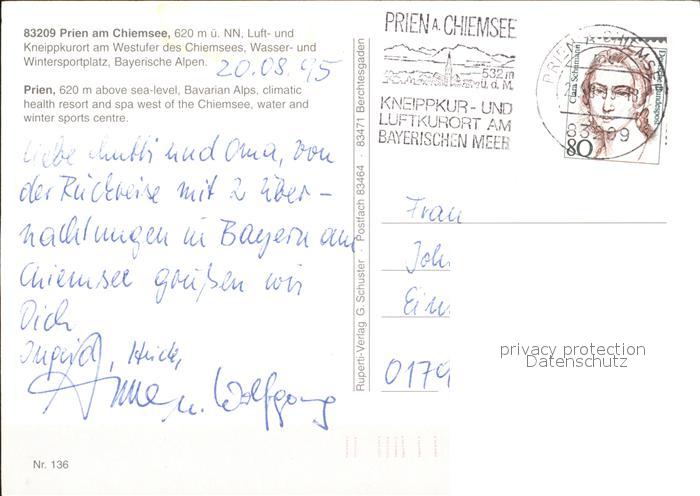 83209 Prien am Chiemsee, 620 m ü. NN, Luft- und
Kneippkurort am Westufer des Chiemsees, Wasser- und
Wintersportplatz, Bayerische Alpen.
20.08.95
Prien, 620 m above sea-level, Bavarian Alps, climatic
health resort and spa west of the Chiemsee, water and
winter sports centre.
Liebe Mutti und Oma, von
der Rückreise mit 2 Über-
nachtungen in Bayern am
Chiemsee grüßen wir
Dich
Ingrid,
Anne u. Wolfgang
Nr. 136
Ruperti-Verlag G. Schuster · Postfach 83464 · 83471 Berchtesgaden
PRIEN A. CHIEMSEE
532m
ü.d.M.
KNEIPPKUR- UND
LUFTKURORT AM
BAYERISCHEN MEER
PRIEN A CHIEMSEE
83209
Clara Schumann
Deutsche Bundespost
80
Frau
Joh
Ein
0179
privacy protection
Datenschutz